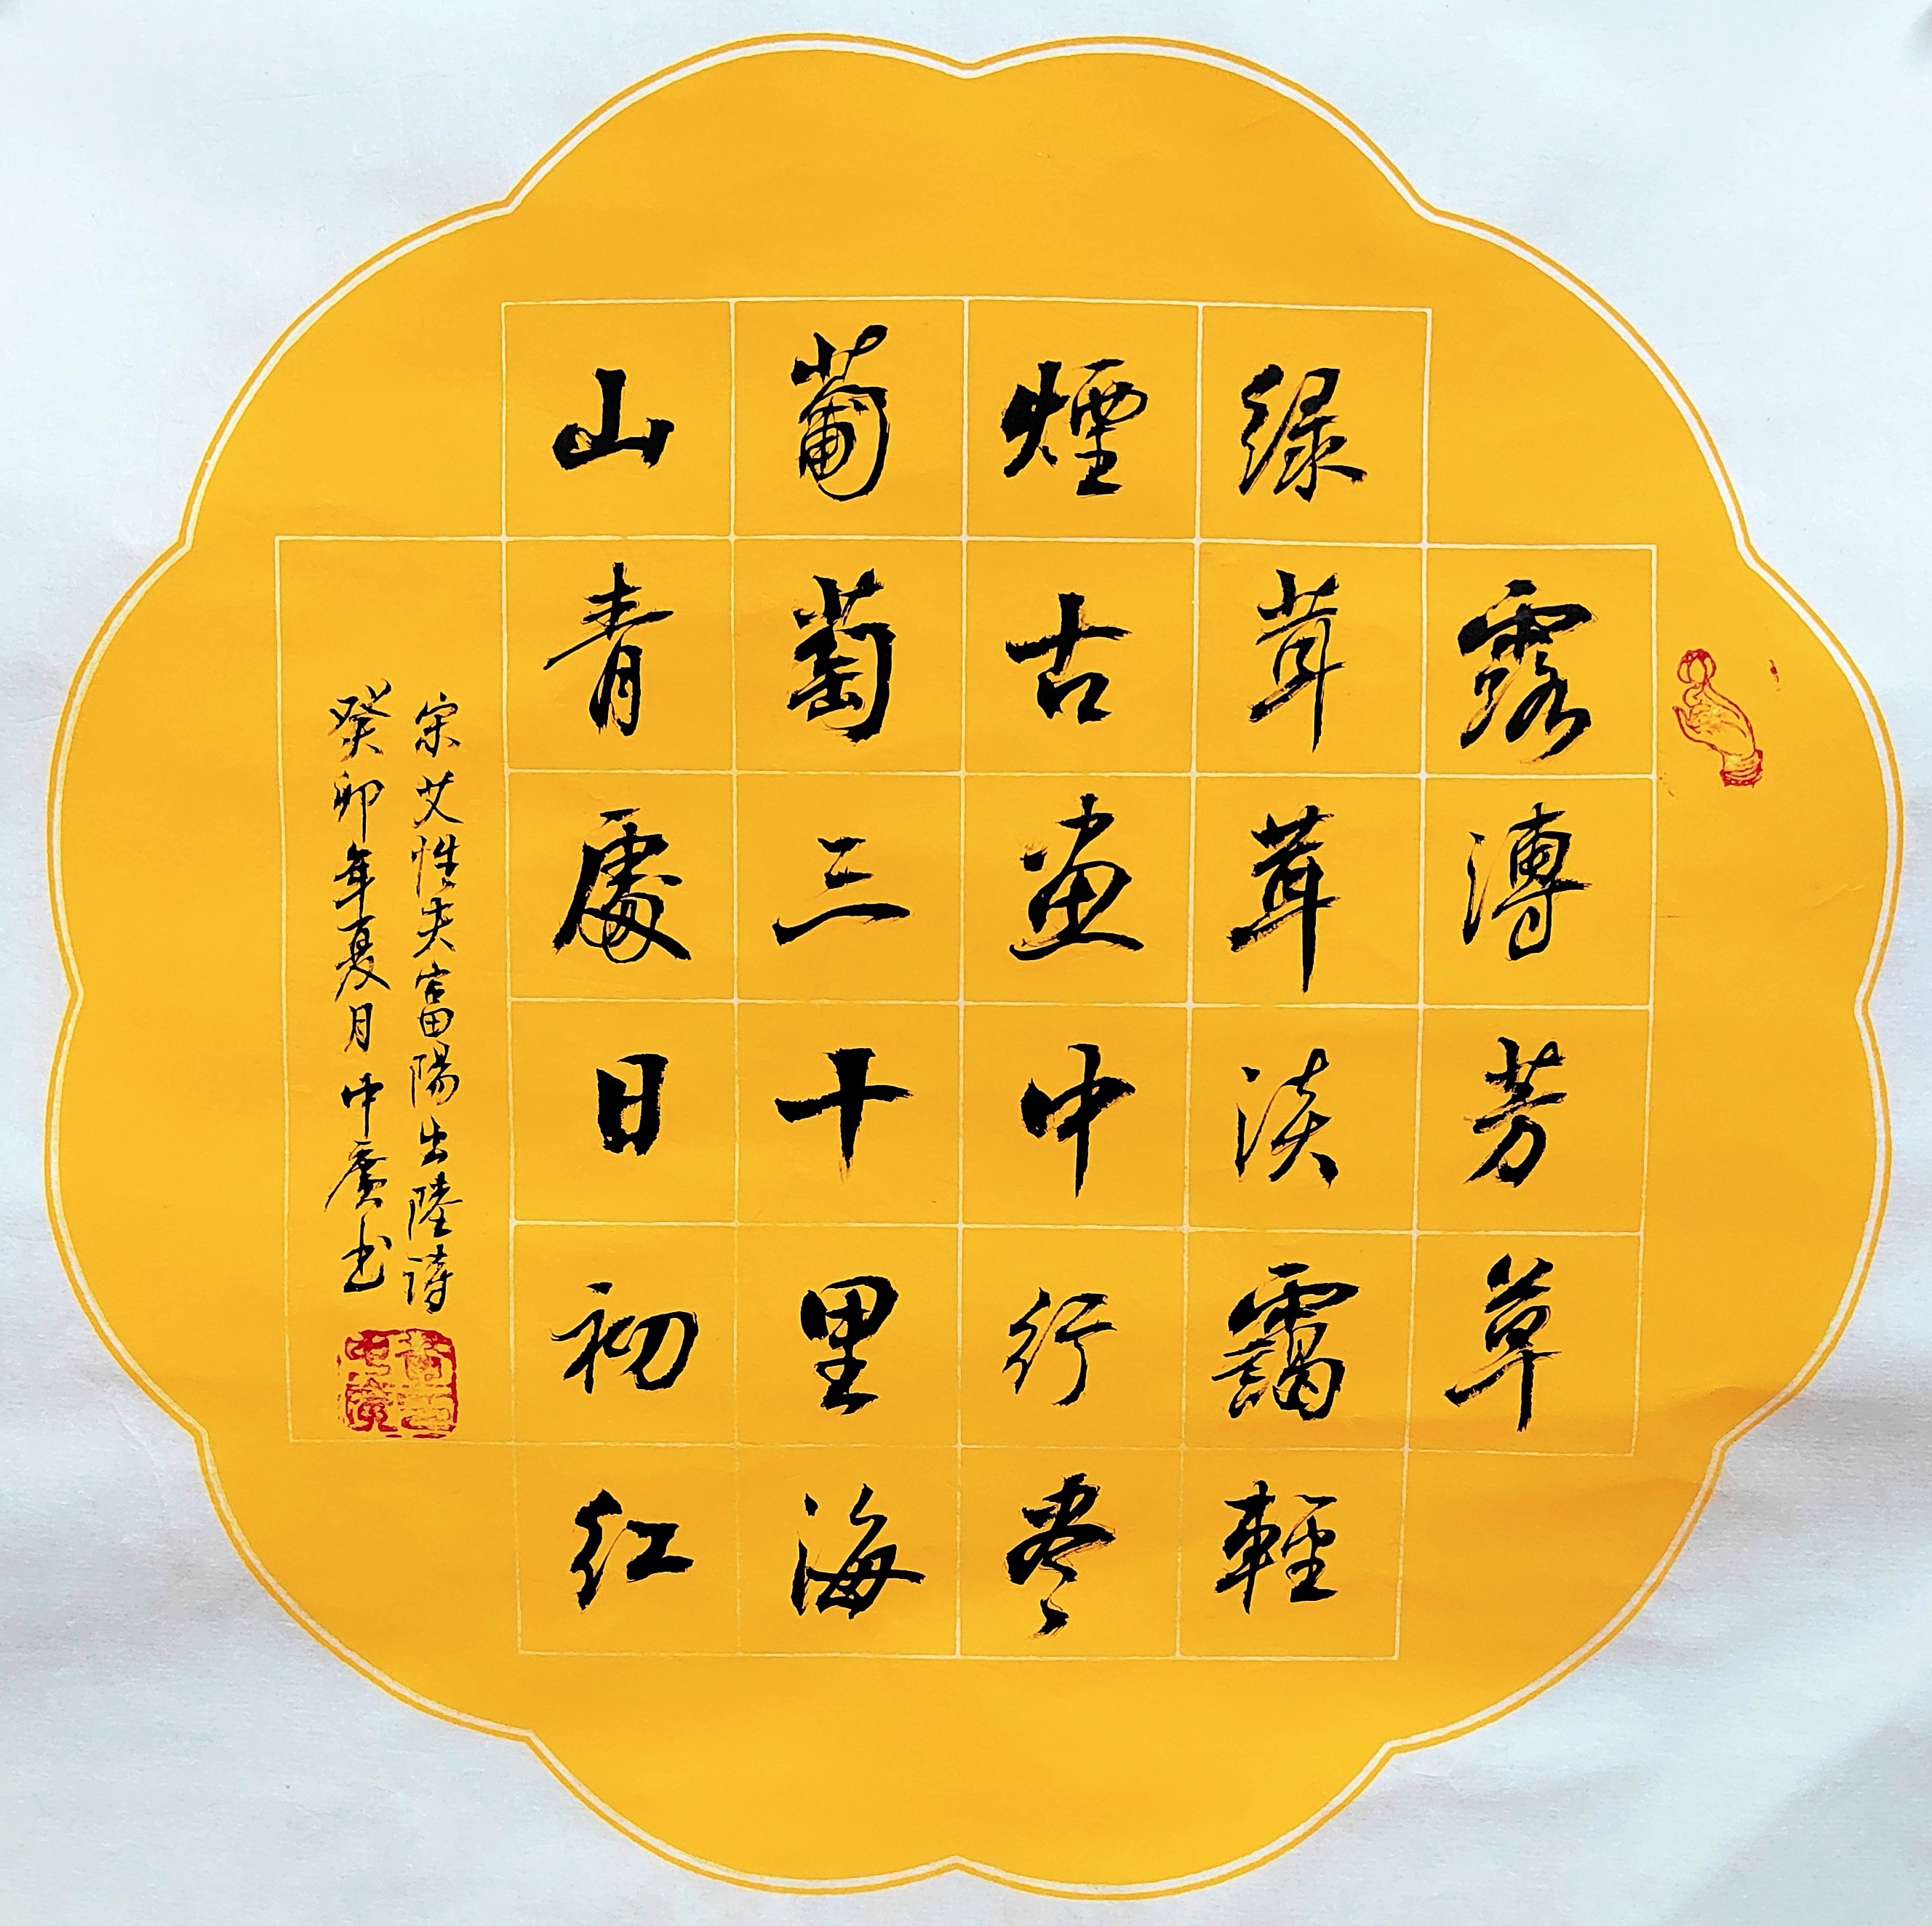 露漙芳草
绿茸茸淡靄輕
煙古畫中行尽
葡萄三十里海
山青處日初红
宋艾性夫富陽出陸詩
癸卯年夏月中廣书